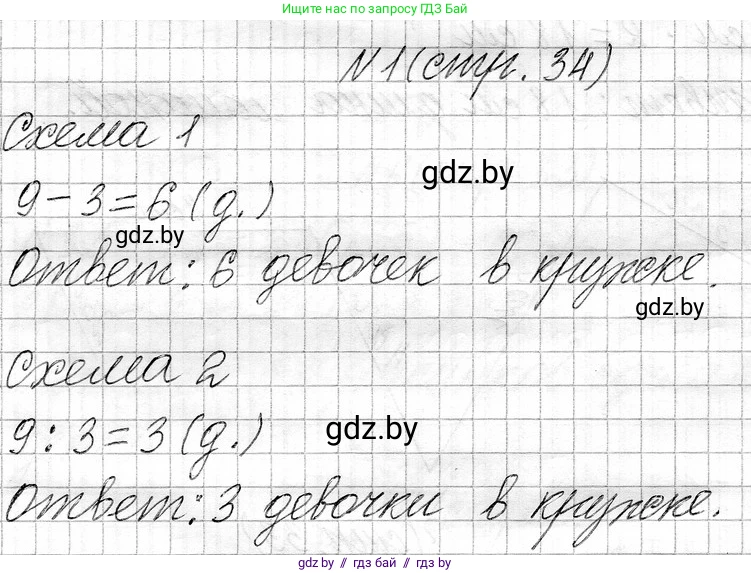 Ищите нас по запросу ГДЗ Бай
N 1 (стр. 34)
Схема 1
gdz.by
9 - 3 = 6 (д.)
gdz.by
Ответ: 6 девочек в кружке.
gdz.by
Схема 2
9 : 3 = 3 (д.)
gdz.by
Ответ: 3 девочки в кружке.
gdz.by // гдз бай // gdz.by